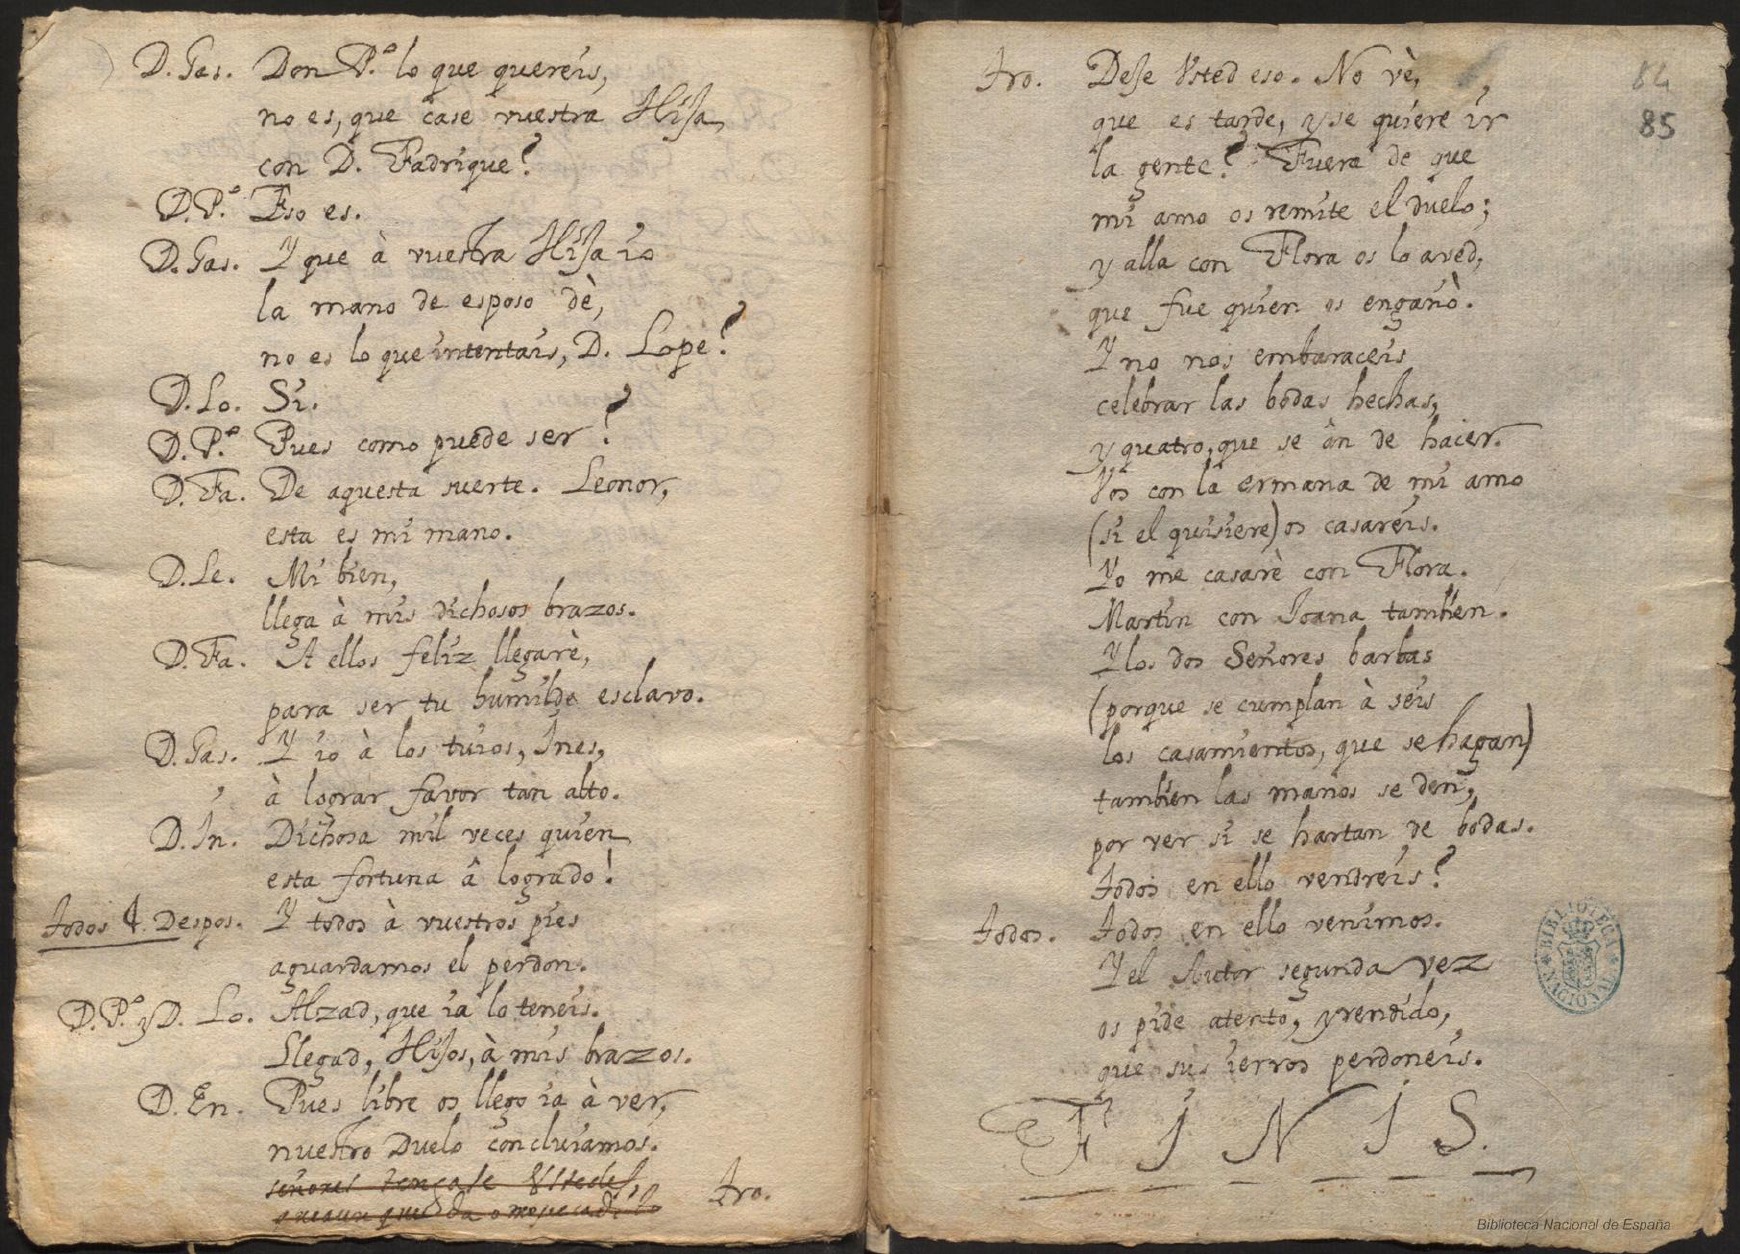 D. Gas. Don P.º lo que quereis,
no es, que case vuestra Hija
con D. Fadrique?
D. P.º Eso es.
D. Gas. Y que à vuestra Hija io
la mano de esposo dè,
no es lo que intentais, D. Lope?
D. Lo. Si.
D. P.º Pues como puede ser?
D. Fa. De aquesta suerte. Leonor,
esta es mi mano.
D. Le. Mi bien,
llega à mis dichosos brazos.
D. Fa. A ellos feliz llegarè,
para ser tu humilde esclavo.
D. Gas. Y io à los tuios, Ines,
à lograr favor tan alto.
D. In. Dichosa mil veces quien
esta fortuna â logrado!
Todos Despos. Y todos à vuestros pies
aguardamos el perdon.
D. P.º y D. Lo. Alzad, que ia lo teneis.
Llegad, Hijos, à mis brazos.
D. En. Pues libre os llego ia à ver,
nuestro Duelo concluiamos.
señores tengase Ustedes,
Tro.
Tro. Deje Usted eso. No vè,
que es tarde, y se quiere ir
la gente? Fuera de que
mi amo os remite el duelo;
y alla con Flora os lo aved,
que fue quien os engañò.
Y no nos embaraceis
celebrar las bodas hechas,
y quatro, que se àn de hacer.
Vos con la ermana de mi amo
(si el quisiere) os casareis.
Yo me casarè con Flora.
Martin con Joana tambien.
Y los dos Señores barbas
(porque se cumplan à seis
los casamientos, que se hagan)
tambien las manos se den,
por ver si se hartan de bodas.
Todos en ello vendreis?
Todos. Todos en ello venimos.
Y el Autor segunda vez
os pide atento, y rendido,
que sus ierros perdoneis.
FINIS.
84
85
BIBLIOTECA NACIONAL
Biblioteca Nacional de España